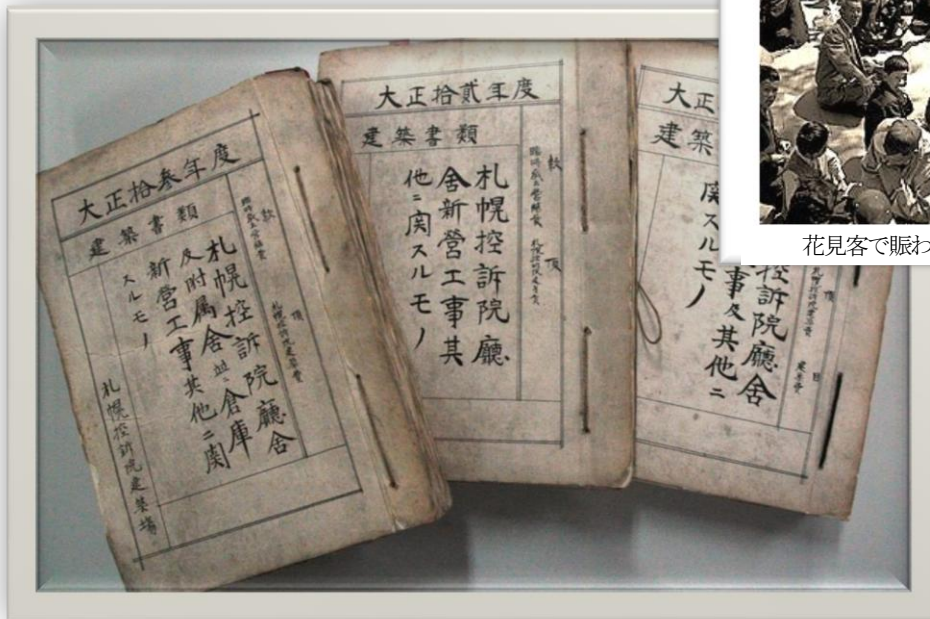 大正拾叁年度
建築書類
款
項
札幌控訴院廳舍
及附属舍並ニ倉庫
新営工事其他ニ関
スルモノ
札幌控訴院建築場
大正拾貳年度
建築書類
款
項
札幌控訴院廳
舍新営工事其
他ニ関スルモノ
大正
建築
項
目
控訴院廳舍
事及其他ニ
関スルモノ
花見客で賑わ